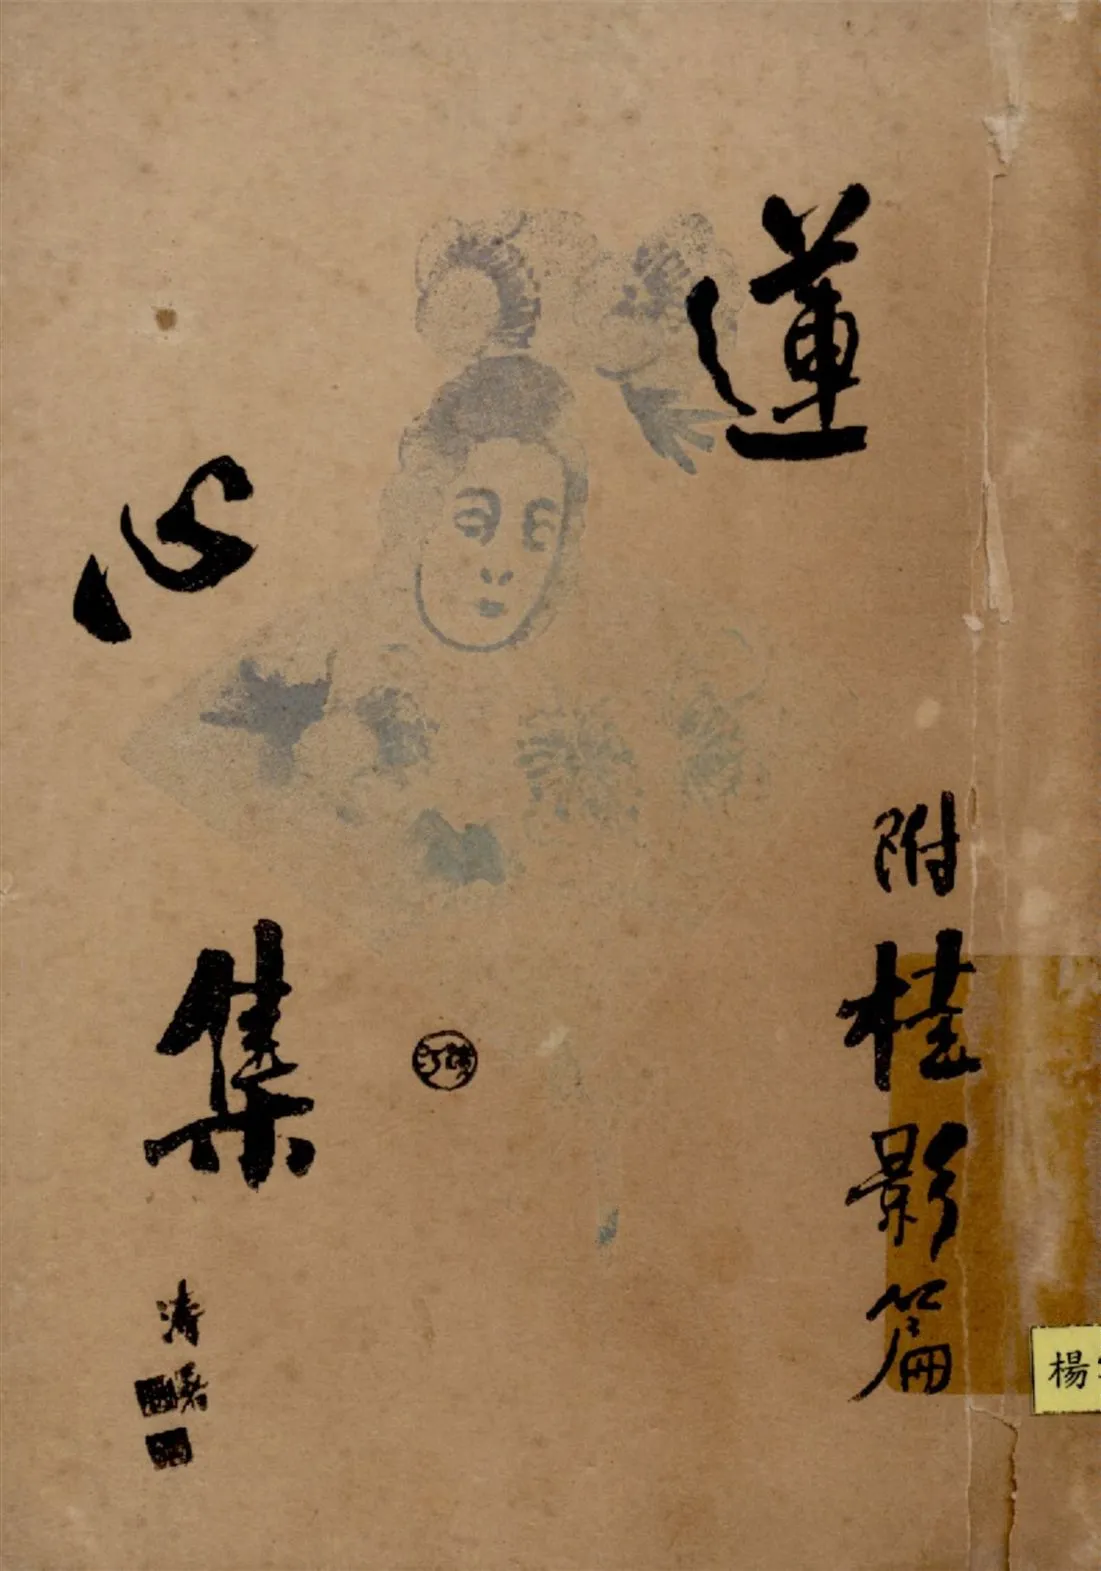 蓮
心
集
附桂影篇
濤
楊